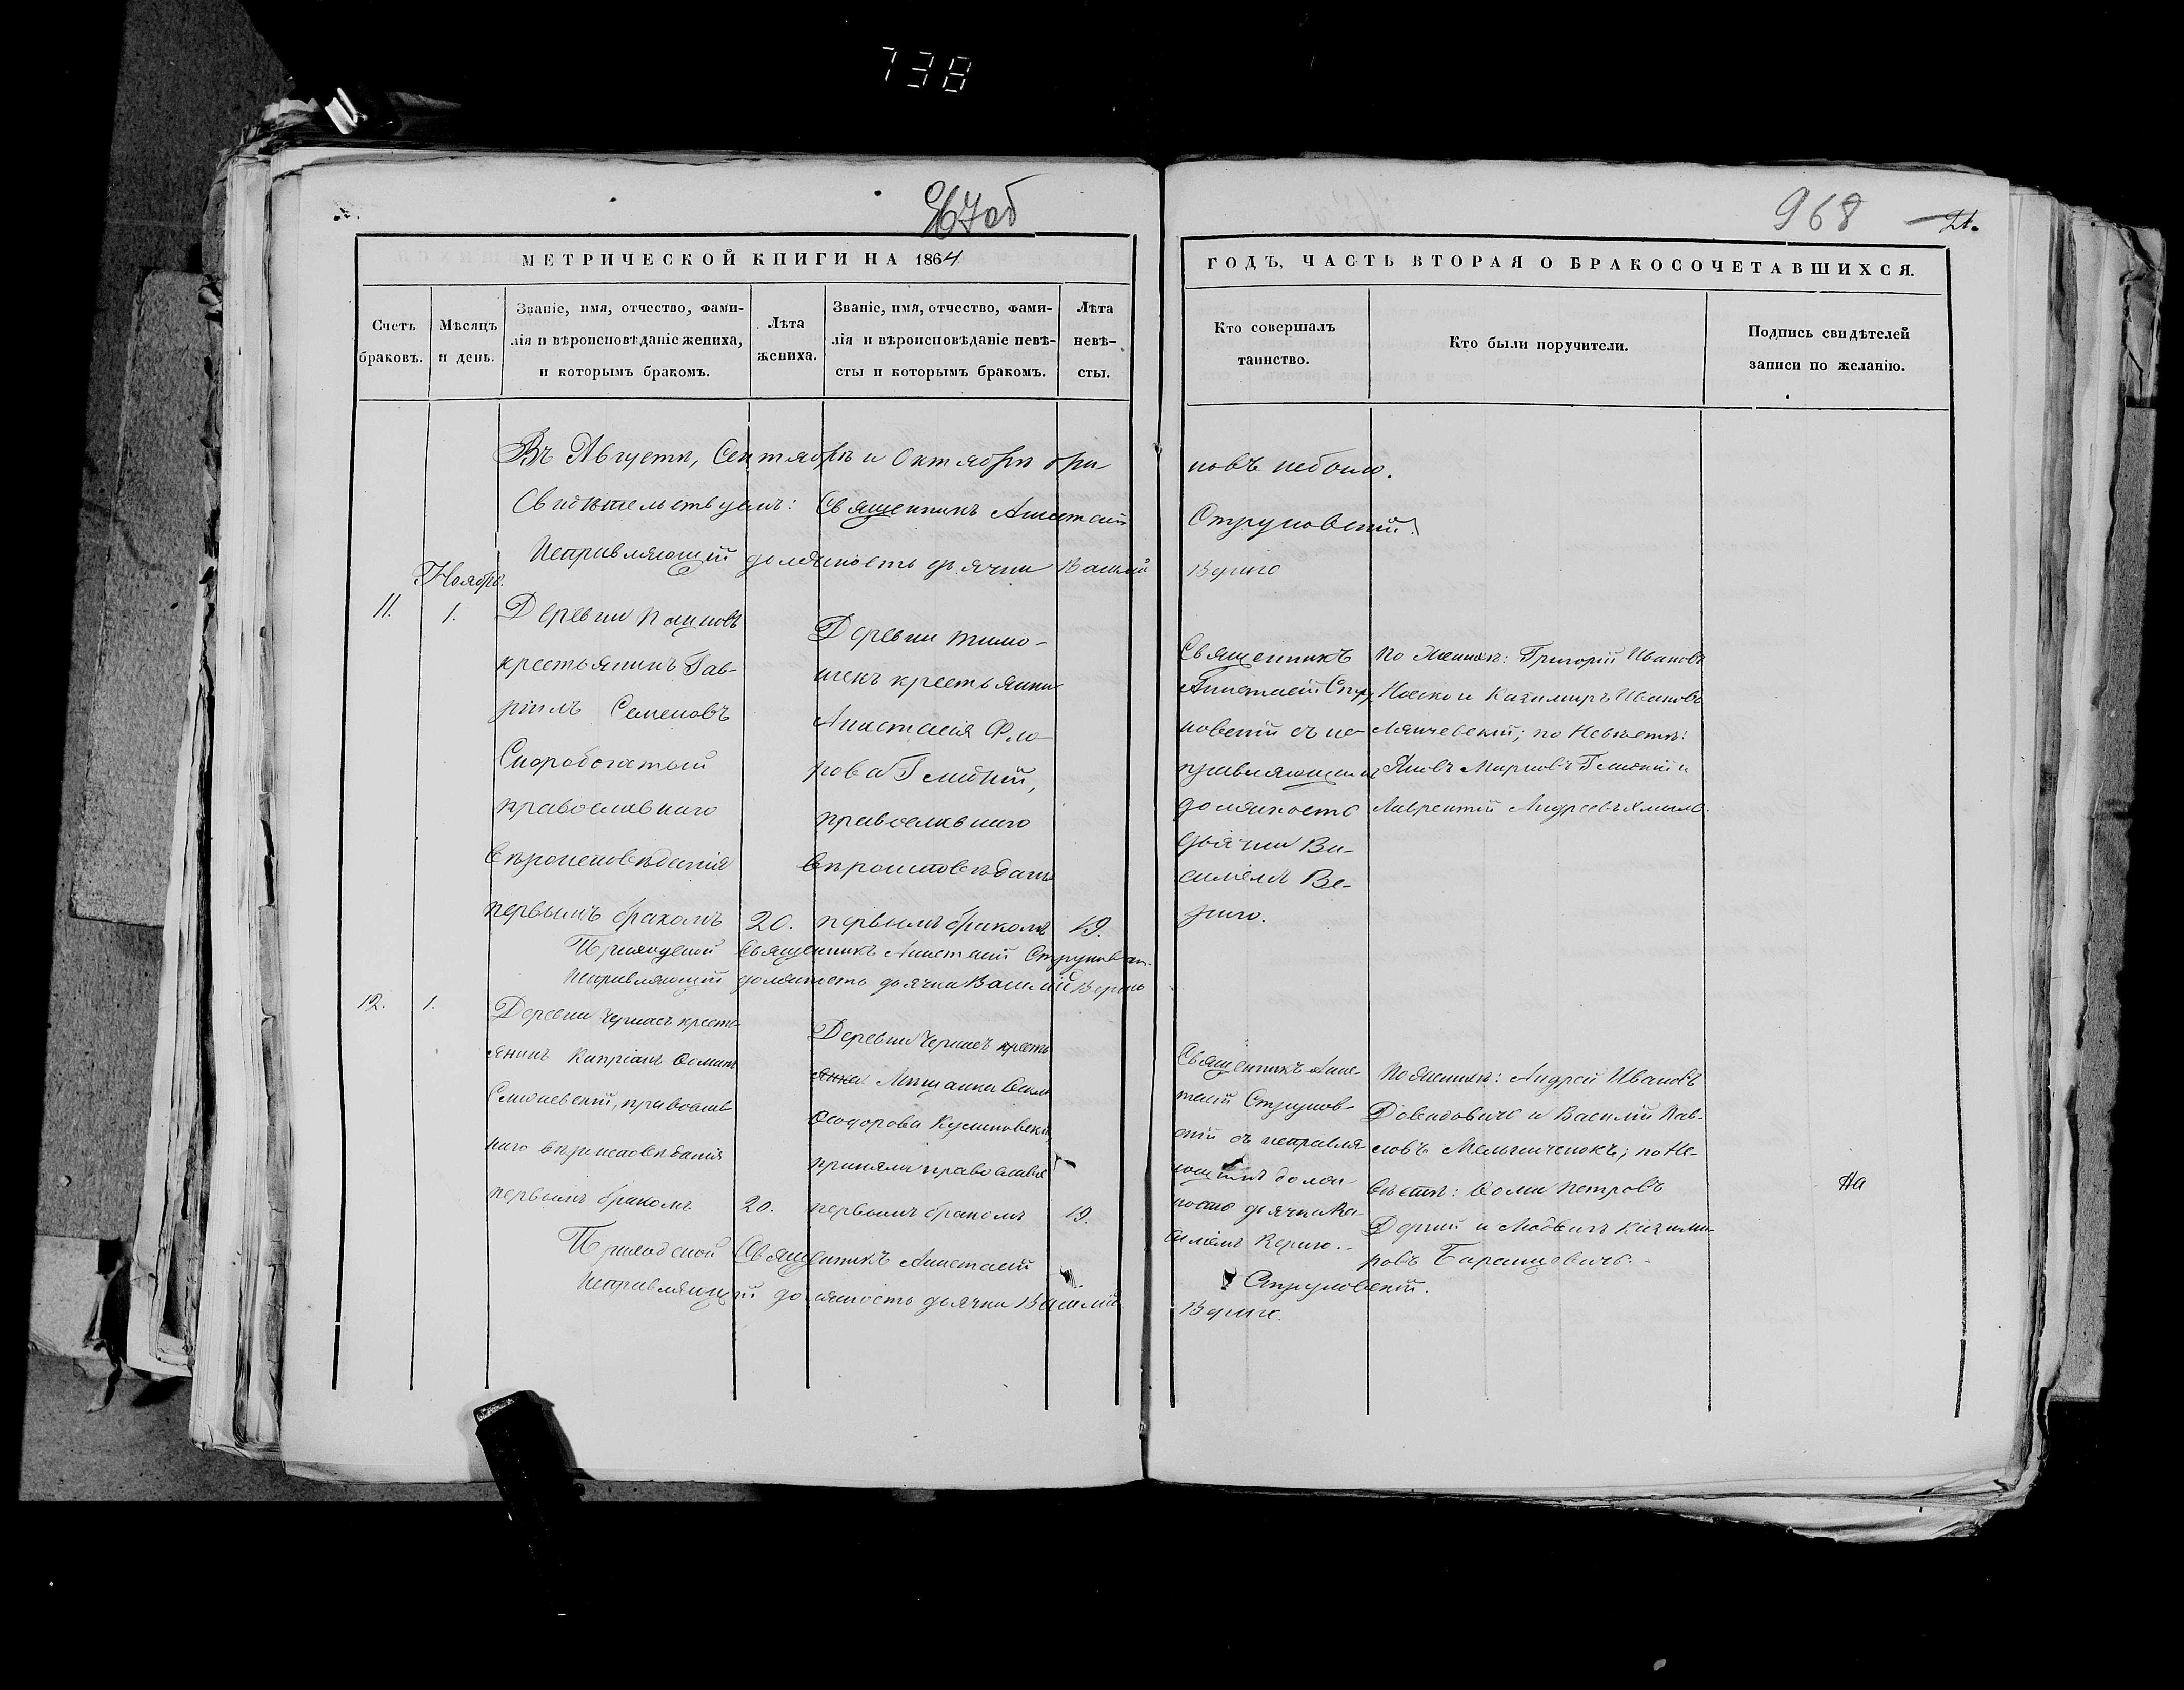 738
967об
968
21.
МЕТРИЧЕСКОЙ КНИГИ НА 1864
ГОДЪ, ЧАСТЬ ВТОРАЯ О БРАКОСОЧЕТАВШИХСЯ.
Счетъ браковъ.
Мѣсяцъ и день.
Званіе, имя, отчество, фами-
лія и вѣроисповѣданіе жениха,
и которымъ бракомъ.
Лѣта жениха.
Званіе, имя, отчество, фами-
лія и вѣроисповѣданіе невѣ-
сты и которымъ бракомъ.
Лѣта
невѣ-
сты.
Кто совершалъ
таинство.
Кто были поручители.
Подпись свидѣтелей
записи по желанію.
Въ Августѣ, Сентябрѣ и Октябрѣ бра
ковъ небыло.
Свидѣтельствуемъ: Священникъ Анастасій
Струковскій.
Исправляющій должность дьячка Василій
Вериго
Ноябрь.
11.
1.
Деревни
крестьянинъ Гав-
ріилъ Семеновъ
Скоробогатый
православнаго
вѣроисповѣданія
первымъ бракомъ
20.
Деревни Тимо-
шекъ крестьянка
Анастасія Фло-
рова
православнаго
вѣроисповѣданія
первымъ бракомъ
19.
Священникъ
Анастасій Стру
ковскій съ ис-
правляющимъ
должность
дьячка Ва-
силіемъ Ве-
риго.
По Женихѣ: Григорій Ивановъ
Носко и Казимиръ Ивановъ
по Невѣстѣ:
Яковъ Марковъ и
Лаврентій Андреевъ
Приходской Священникъ Анастасій Струковскій
Исправляющій должность дьячка Василій Вериго
12.
1.
Деревни кресть-
янинъ Кипріанъ Ѳоминъ
православ-
наго вѣроисповѣданія
первымъ бракомъ
20.
Деревни кресть
янка
Ѳеодорова
православіе
первымъ бракомъ
19.
Священникъ Анас-
тасій Струков-
скій съ исправля
ющимъ долж-
ность дьячка Ва-
силіемъ Вериго.
По Женихѣ: Андрей Ивановъ
и Василій Пав-
ловъ по Не-
вѣстѣ: Ѳома Петровъ
и Казими-
ровъ Барановичъ.
На
Приходской Священникъ Анастасій
Струковскій.
Исправляющій должность дьячка Василій
Вериго.